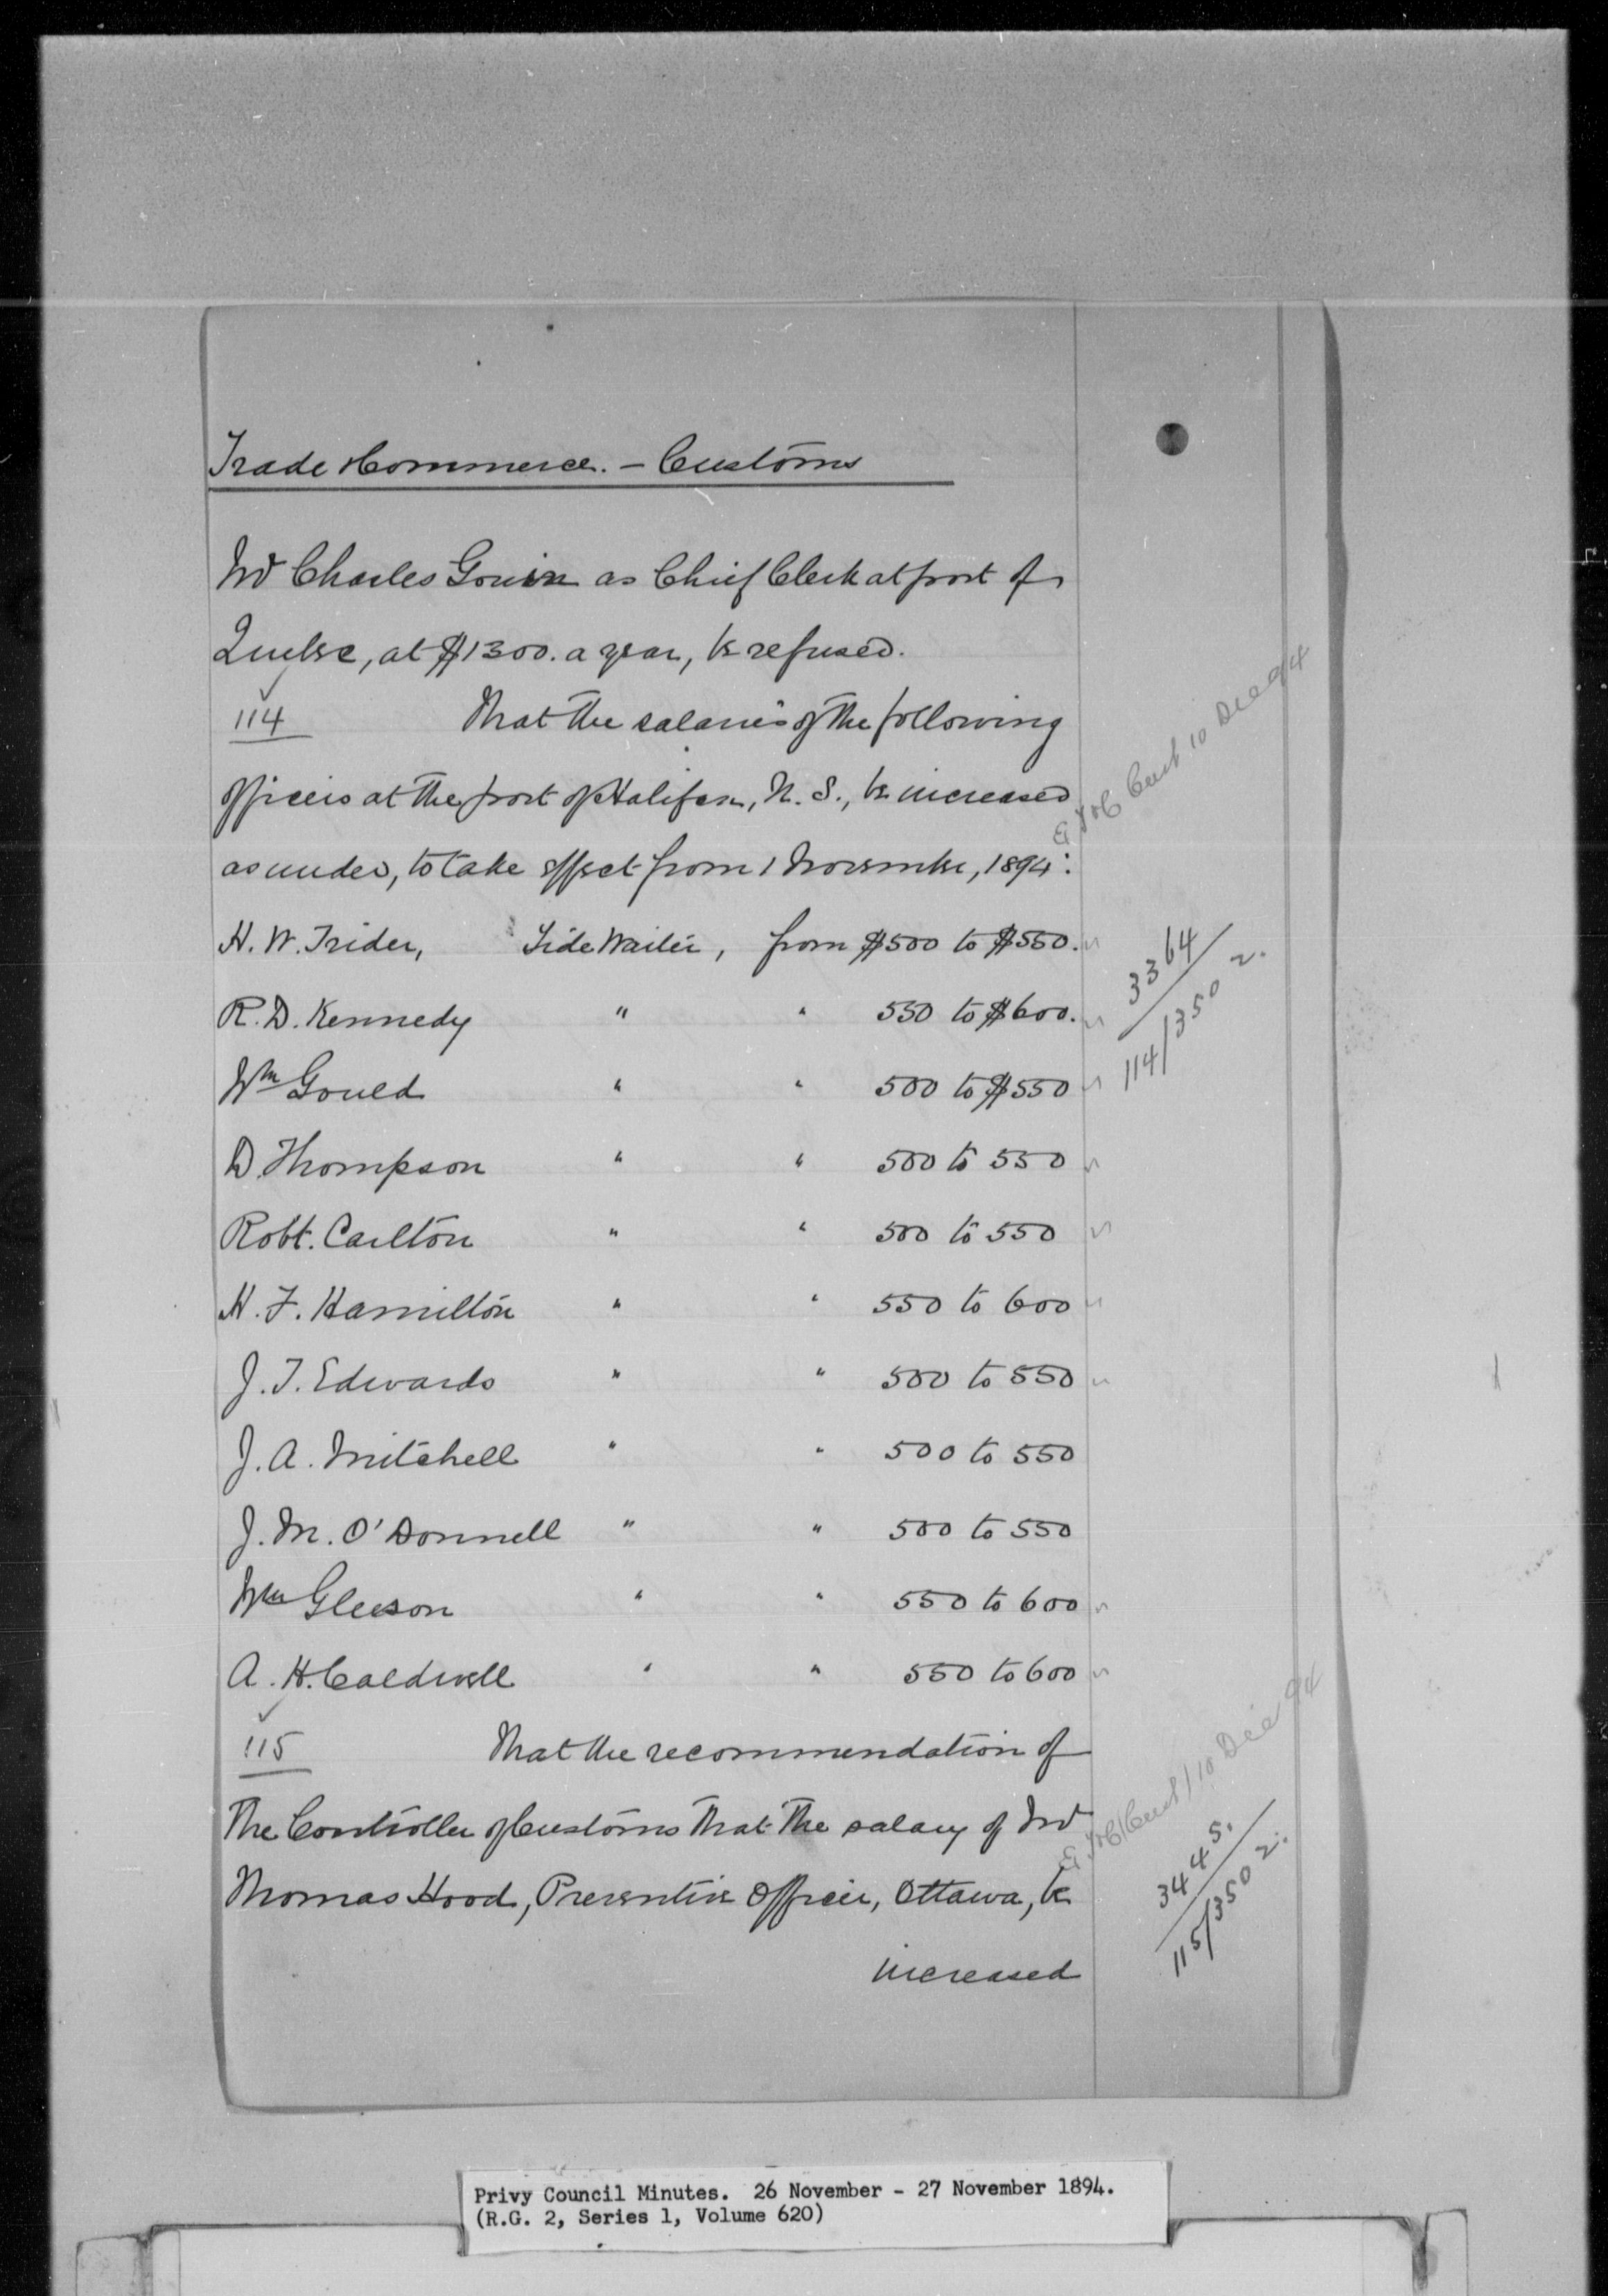 Trade & Commerce. – Customs
Mr Charles Gouin as Chief Clerk at port of
Quebec, at $1300. a year, be refused.
114 That the salaries of the following
officers at the port of Halifax, N. S., be increased
as under, to take effect from 1 November, 1894:
H. W. Trider, Tide Waiter, from $500 to $550.
R. D. Kennedy " " 550 to $600.
Wm Gould " " 500 to $550
D. Thompson " " 500 to 550
Robt. Carlton " " 500 to 550
H. F. Hamilton " " 550 to 600
J. T. Edwards " " 500 to 550
J. A. Mitchell " " 500 to 550
J. M. O'Donnell " " 500 to 550
Wm Gleeson " " 550 to 600
A. H. Caldwell " " 550 to 600
115 That the recommendation of
The Controller of Customs that the salary of Mr
Thomas Hood, Preventive Officer, Ottawa, be
increased
10 Dec 94
3364
114/350 2.
10 Dec 94
3445.
115/350 2.
Privy Council Minutes. 26 November - 27 November 1894.
(R.G. 2, Series 1, Volume 620)